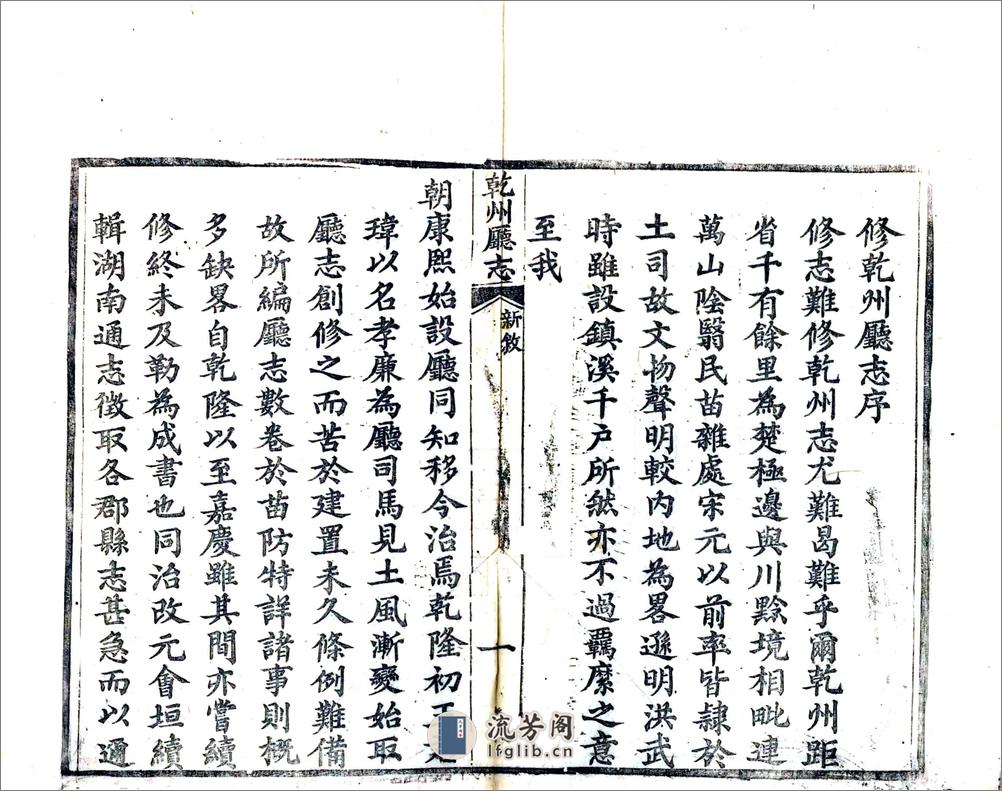 修乾州廳志序
修志難修乾州志尤難曷難乎爾乾州距
省千有餘里為楚極邊與川黔境相毗連
萬山陰翳民苗雜處宋元以前率皆隷於
土司故文物聲明較内地為畧遜明洪武
時雖設鎮溪千戶所然亦不過羈縻之意
至我
乾州廳志
新敘
一
朝康熙始設廳同知移今治焉乾隆初王
瑋以名孝廉為廳司馬見土風漸變始取
廳志創修之而苦於建置未久條例難備
故所編廳志數卷於苗防特詳諸事則概
多缺畧自乾隆以至嘉慶雖其間亦嘗續
修終未及勒為成書也同治改元會垣續
輯湖南通志徵取各郡縣志甚急而以通
流芳阁
lfglib.cn